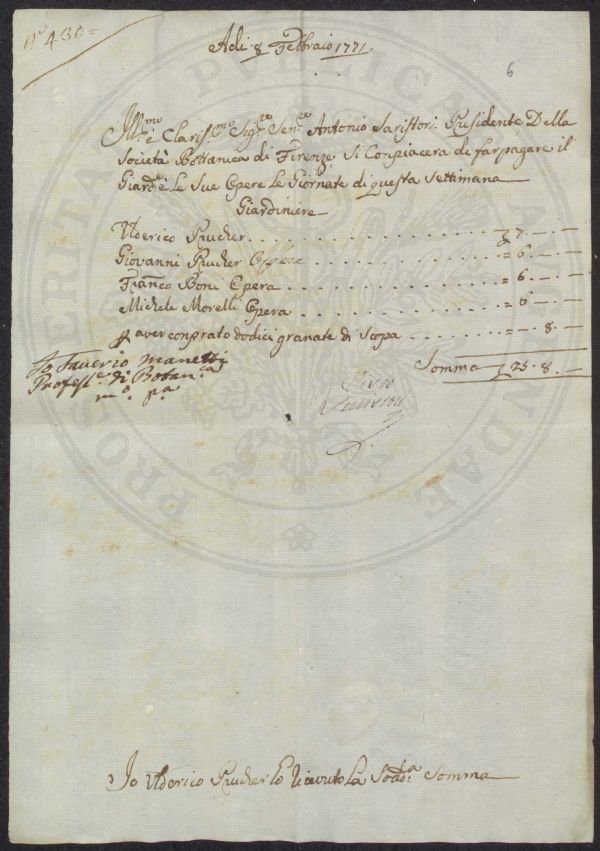 N.º 430 =
Adi: 8 Febbraio 1771.
6
Ill.mo e Claris.mo Sig.re Sen.re Antonio Saristori Presidente Della
Società Bottanica di Firenze, Si Conpiacera di far pagare il
Giard.e e Le Sue Opere Le Giornate di questa Settimana
Giardiniere
Uderico Prucher . . . £ 7. — . —
Giovanni Prucher Opera . . . = 6. — . —
Franco Boni Opera . . . = 6. — . —
Michele Morelli Opera . . . = 6 — . —
p aver conprato dodici granate di Scopa . . . = — . 8. —
Somma £ 25. 8. —
Io Saverio Manetti
Profess.e di Botan.ca
m.o p.a
Io Uderico Prucher Ho Ricevuto La Sodd.a Somma
PROSPERITATI PUBLICAE AUGENDAE